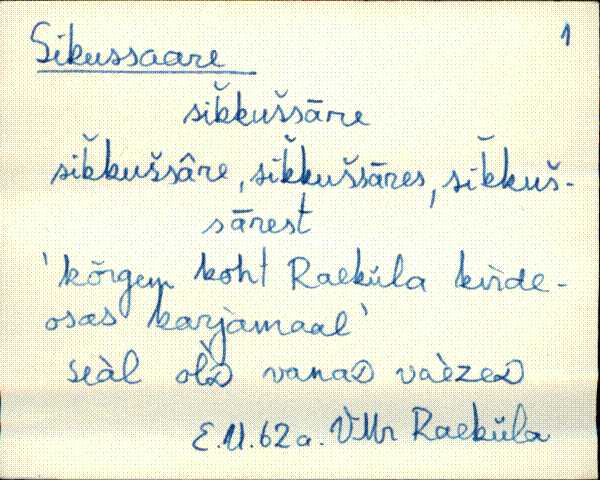 Sikussaare 1
sik̆kuššāre
sik̆kuššâre, sik̆kuššāres, sik̆kuš-
sārest
'kõrgem koht Raeküla kirde-
osas karjamaal'
seàl olD vanaD vaèzeD
E.U.62a. VMr Raeküla